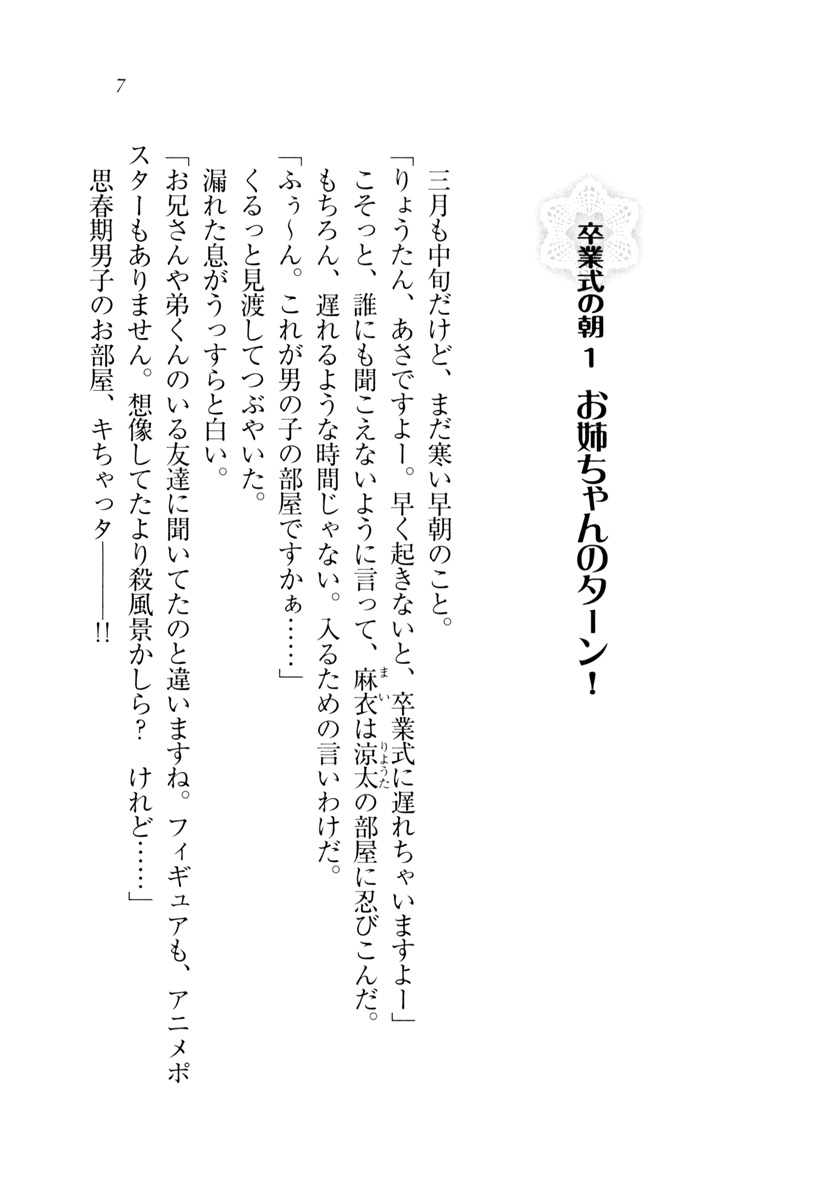 7
卒業式の朝1 お姉ちゃんのターン!
三月も中旬だけど、まだ寒い早朝のこと。
「りょうたん、あさですよー。早く起きないと、卒業式に遅れちゃいますよー」
こそっと、誰にも聞こえないように言って、麻衣は涼太の部屋に忍びこんだ。
まい
りょうた
もちろん、遅れるような時間じゃない。入るための言いわけだ。
「ふぅ〜ん。これが男の子の部屋ですかぁ……」
くるっと見渡してつぶやいた。
漏れた息がうっすらと白い。
「お兄さんや弟くんのいる友達に聞いてたのと違いますね。フィギュアも、アニメポ
スターもありません。想像してたより殺風景かしら? けれど……」
思春期男子のお部屋、キちゃっタ――!!